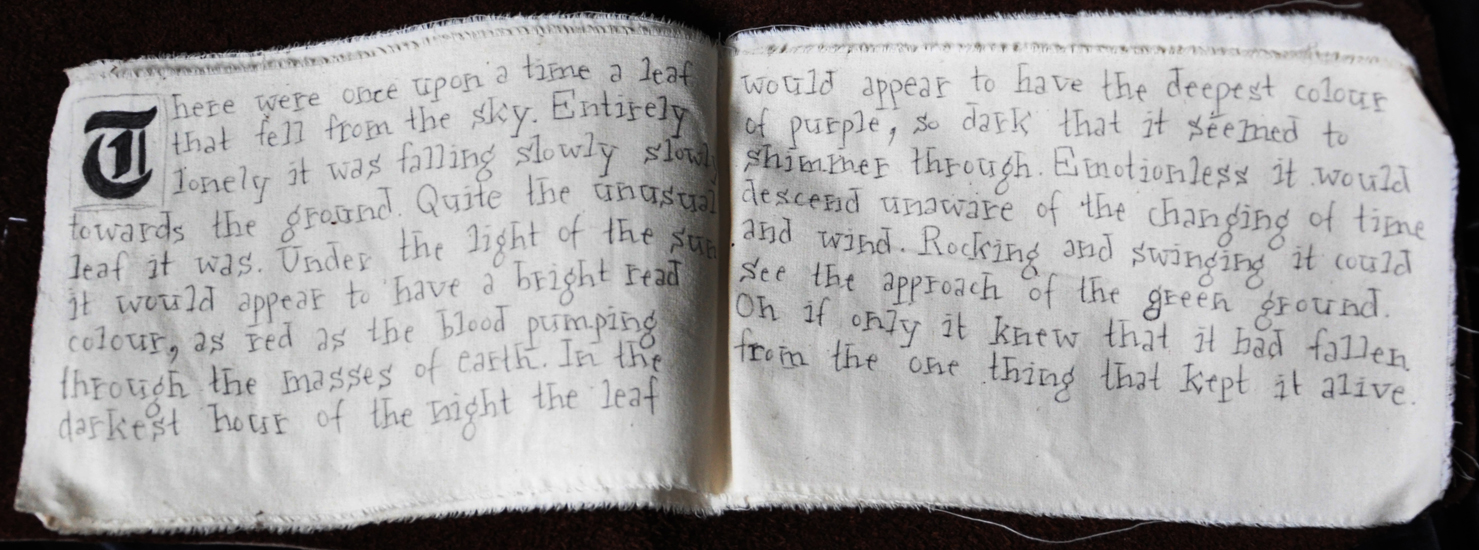 There were once upon a time a leaf
that fell from the sky. Entirely
lonely it was falling slowly slowly
towards the ground. Quite the unusual
leaf it was. Under the light of the sun
it would appear to have a bright read
colour, as red as the blood pumping
through the masses of earth. In the
darkest hour of the night the leaf
would appear to have the deepest colour
of purple, so dark that it seemed to
shimmer through. Emotionless it would
descend unaware of the changing of time
and wind. Rocking and swinging it could
see the approach of the green ground.
Oh if only it knew that it had fallen
from the one thing that kept it alive.